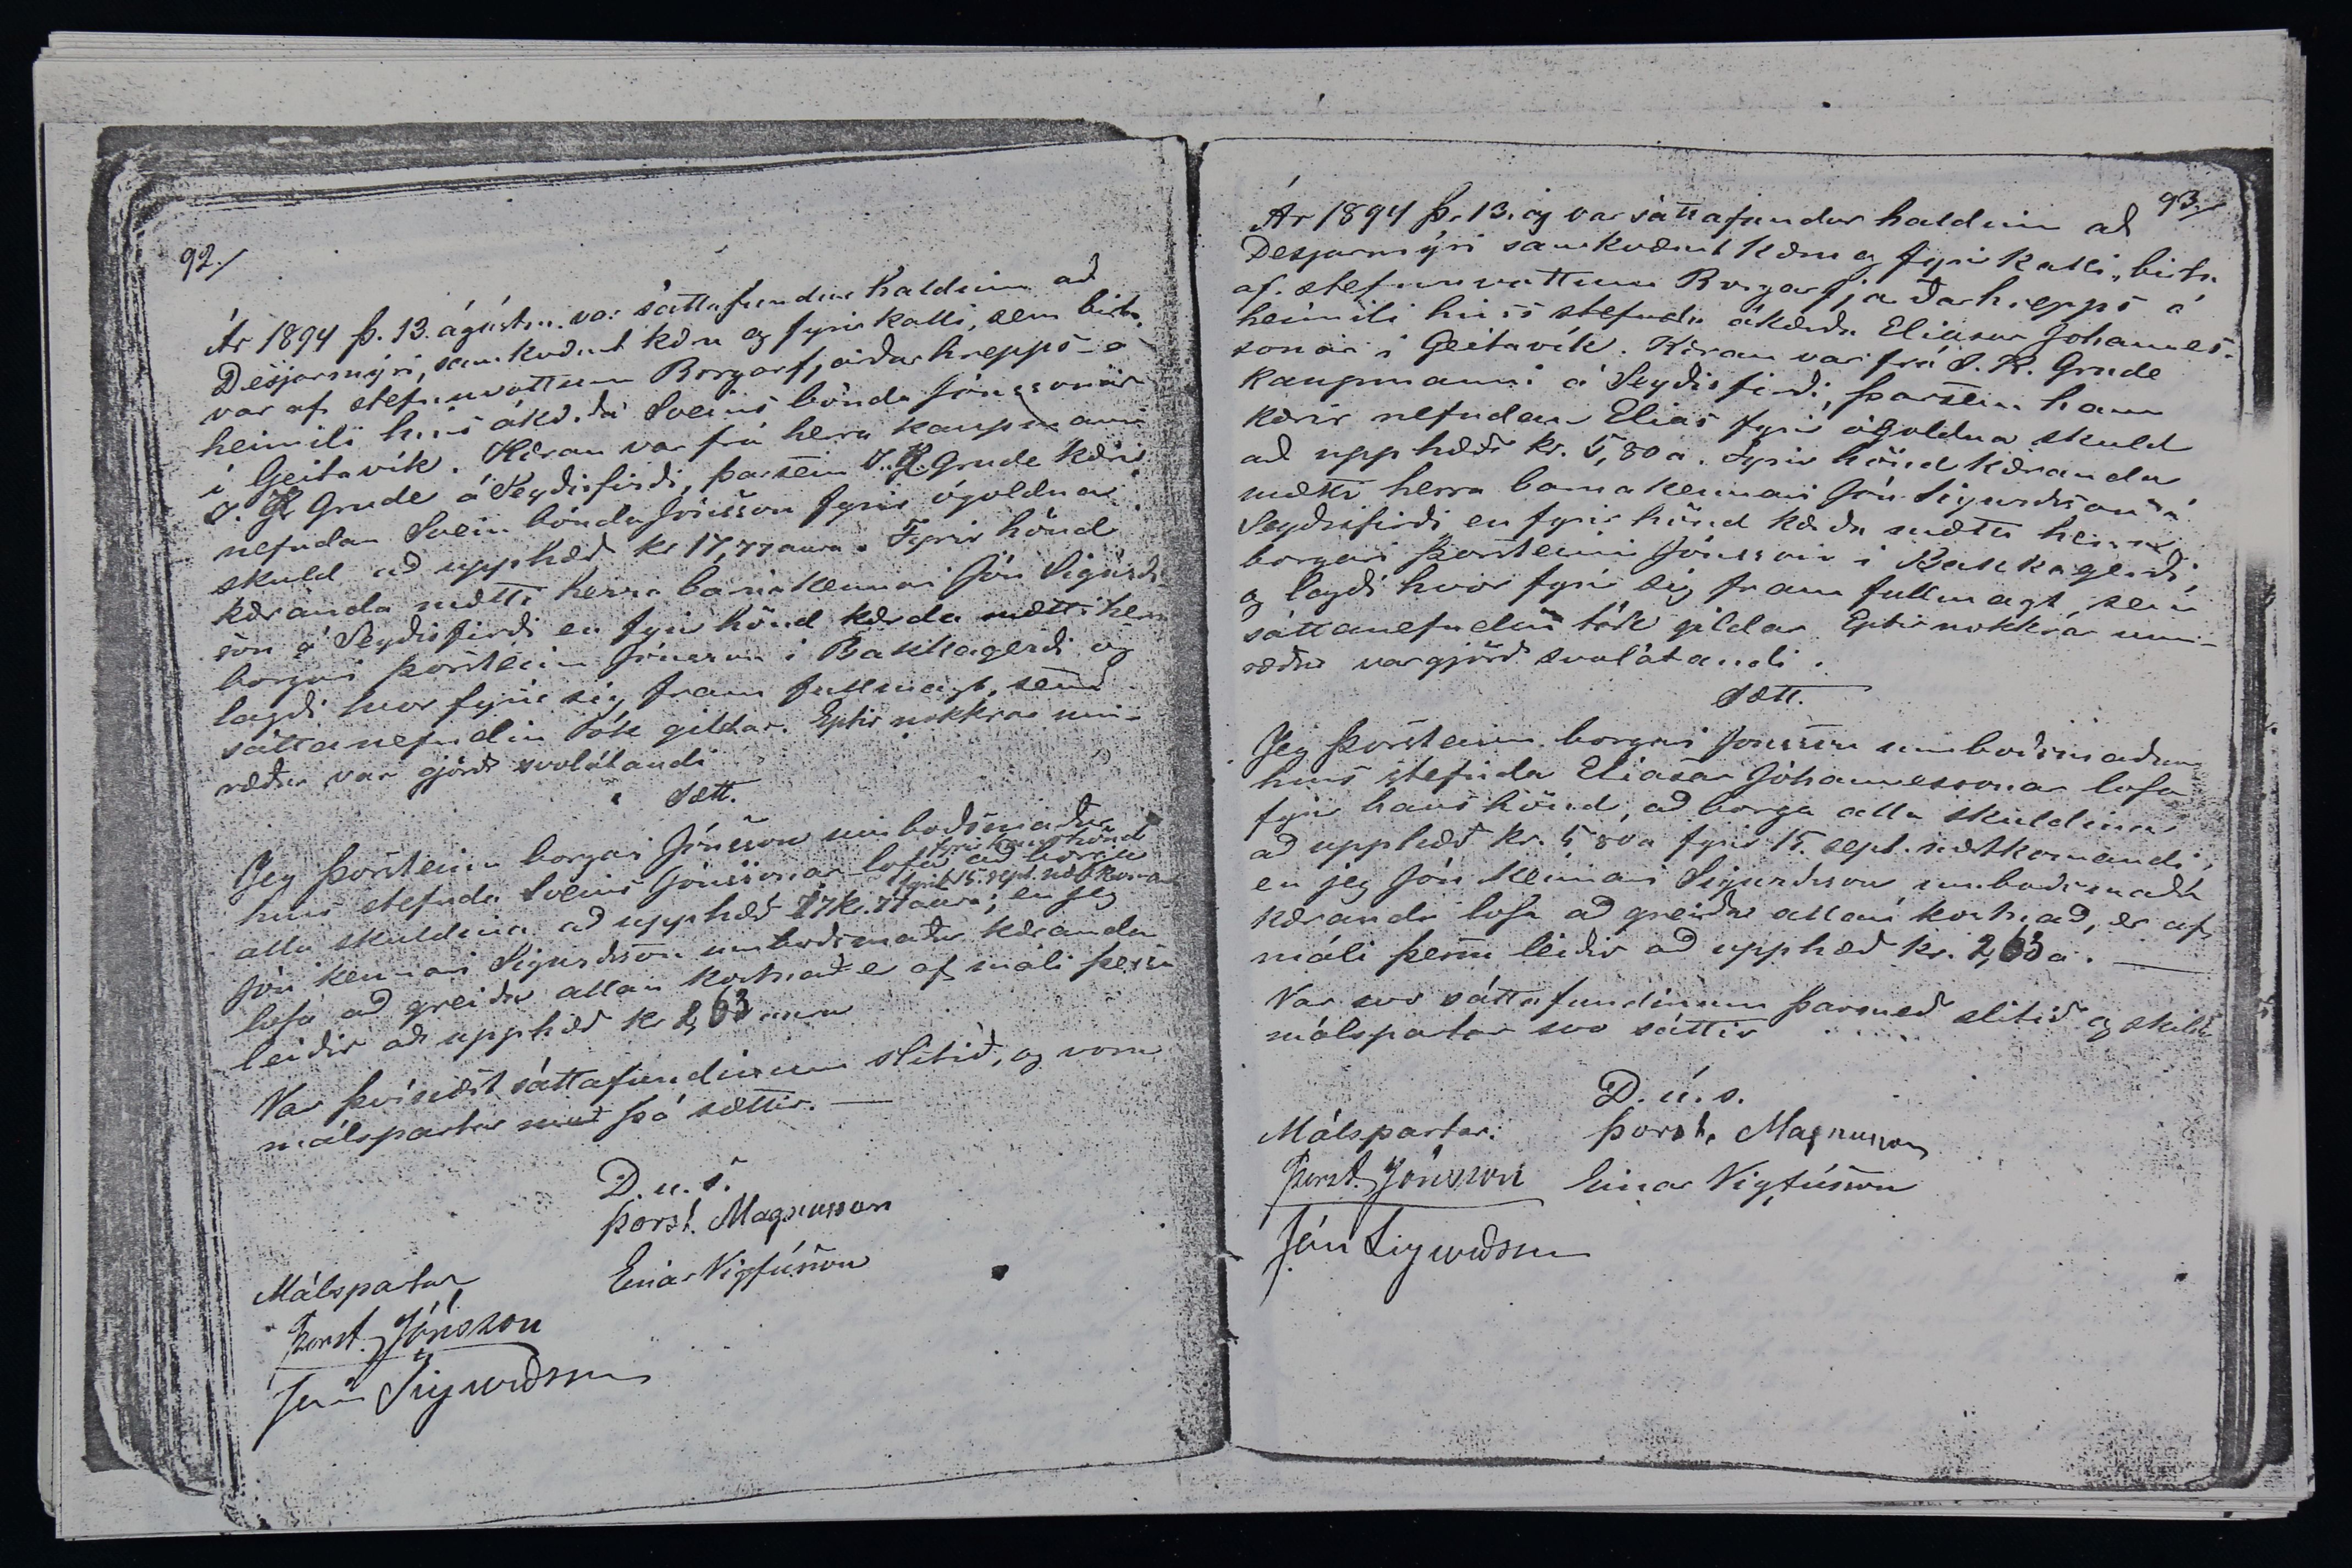 92./
Ár 1894 þ. 13. ágústm. var sáttafundur haldinn að
Desjarmýri, samkvæmt kæru og fyrirkalli, sem birt
var af stefnuvottum Borgarfjarðarhrepps á
heimili hins ákærða Sveins bónda Jónssonar
í Geitavík. Kæran var frá herra kaupmanni
S. K. Grude á Seyðisfirði, þarsem S. K. Grude kærir
nefndan Svein bónda Jónsson fyrir ógoldna
skuld að upphæð kr 17,77 aura. Fyrir hönd
kæranda mætti herra barnakennari Jón Sigurðs-
son á Seyðisfirði en fyrir hönd kærða mætti herra
borgari Þorsteinn Jónsson í Bakkagerði og
lagði hvor fyrir sig fram fullmagt, sem
sáttanefndin tók gildar. Eptir nokkrar um-
ræður var gjörð svolátandi
Sætt.
Jeg Þorsteinn borgari Jónsson umboðsmaður
hins stefnda Sveins Jónssonar lofa fyrir hans hönd að borga
alla skuldina að upphæð 17 kr. 77 aura fyrir 15. sept. næstkomandi; en jeg
Jón kennari Sigurðsson umboðsmaður kæranda
lofa að greiða allan kostnað er af máli þessu
leiðir að upphæð kr 2,63 aura
Var þvínæst sáttafundinum slitið, og voru
málspartar með þá sættir. —
D. u. s.
Þorst. Magnusson
Einar Vigfússon
Málspartar
Þorst. Jónsson
Jón Sigurðsson
93/
Ár 1894 þ. 13. ág var sáttafundur haldinn að
Desjarmýri samkvæmt kæru og fyrirkalli, birtu
af stefnuvottum Borgarfjarðarhrepps á
heimili hins stefnda ákærða Eliasar Jóhannes-
sonar í Geitavík. Kæran var frá S. K. Grude
kaupmanni á Seyðisfirði, þarsem hann
kærir nefndan Elías fyrir ógoldna skuld
að upphæð kr. 5,80 a. Fyrir hönd kæranda
mætti herra barnakennari Jón Sigurðsson á
Seyðisfirði en fyrir hönd kærða mætti herra
borgari Þorsteinn Jónsson í Bakkagerði,
og lagði hvor fyrir sig fram fullmagt, sem
sáttanefndin tók gildar. Eptir nokkrar um-
ræður var gjörð svolátandi.
Sætt.
Jeg Þorsteinn borgari Jónsson umboðsmaður
hins stefnda Elíasar Jóhannessonar lofa
fyrir hans hönd, að borga alla skuldina
að upphæð kr. 5 80 a fyrir 15. sept. næstkomandi,
en jeg Jón kennari Sigurðsson umboðsmaður
kæranda lofa að greiða allan kostnað, er af
máli þessu leiðir að upphæð kr. 2,63 a. —
Var svo sáttafundinum þarmeð slitið og skildu
málspartar svo sáttir
D. ú. s.
Málspartar. Þorst. Magnusson
Þorst. Jónsson Einar Vigfússon
Jón Sigurðsson